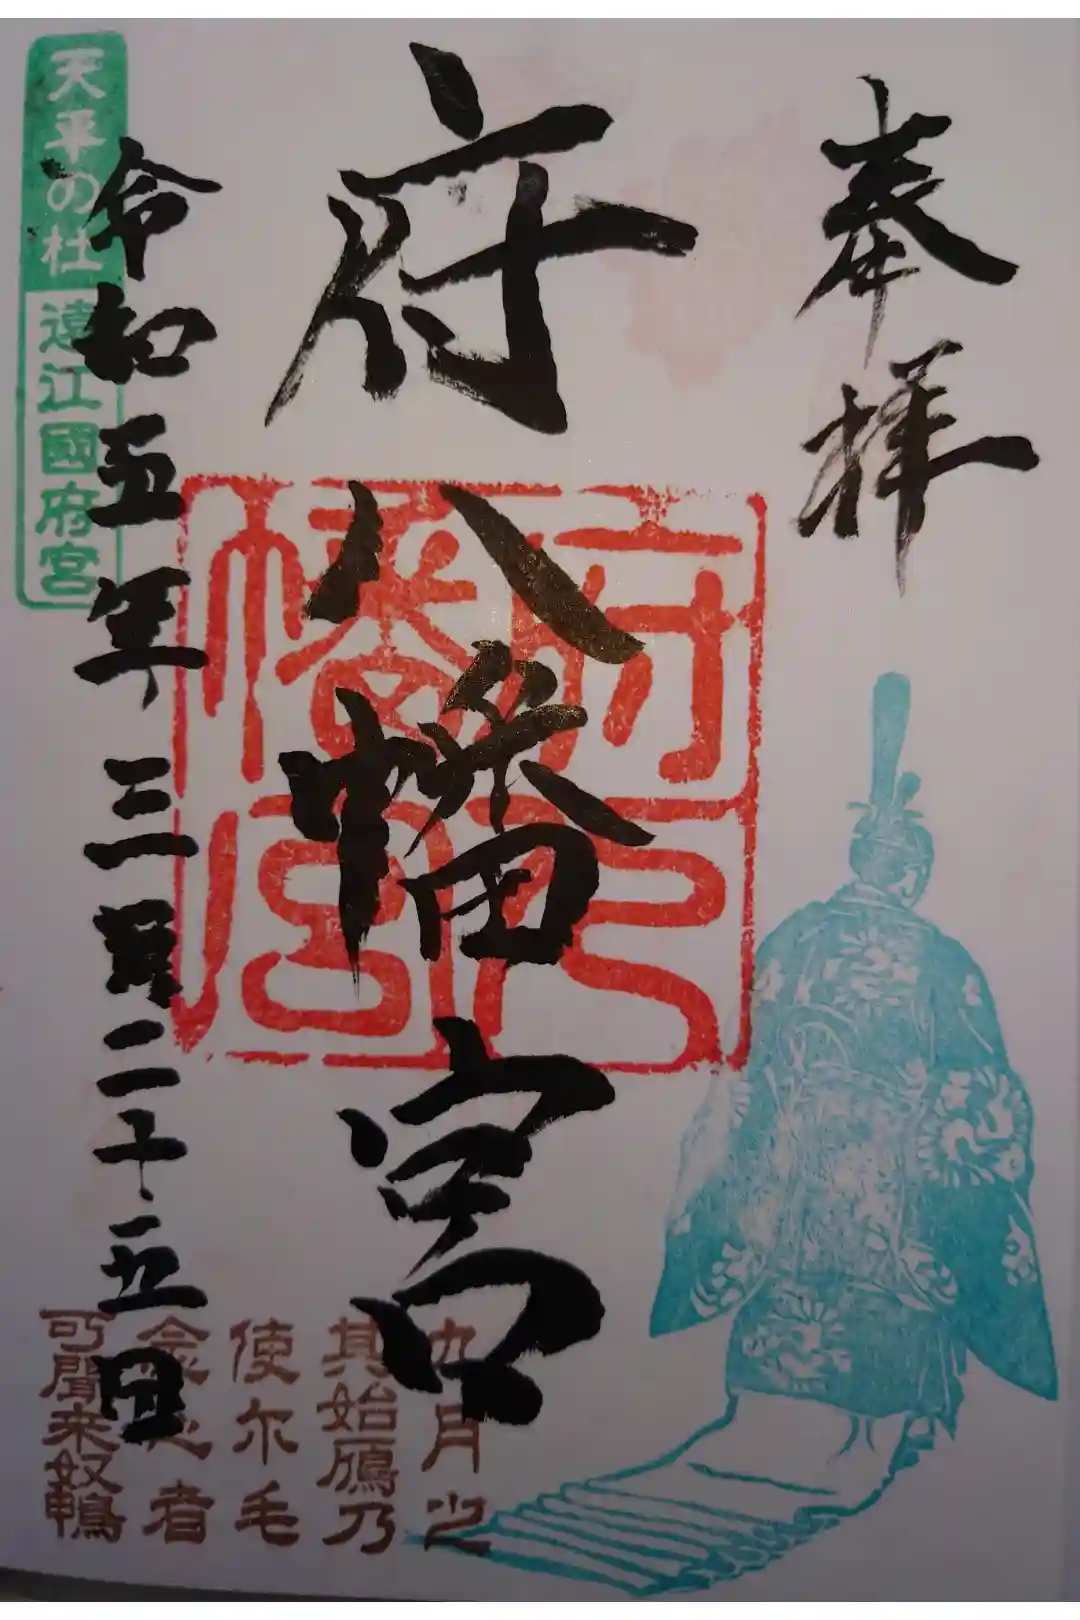 奉拝
府八幡宮
府八幡宮
令和五年三月二十五日
天平の杜
遠江國府宮
九月之
其始鴈乃
使尓毛
念心者
可聞来奴鴨